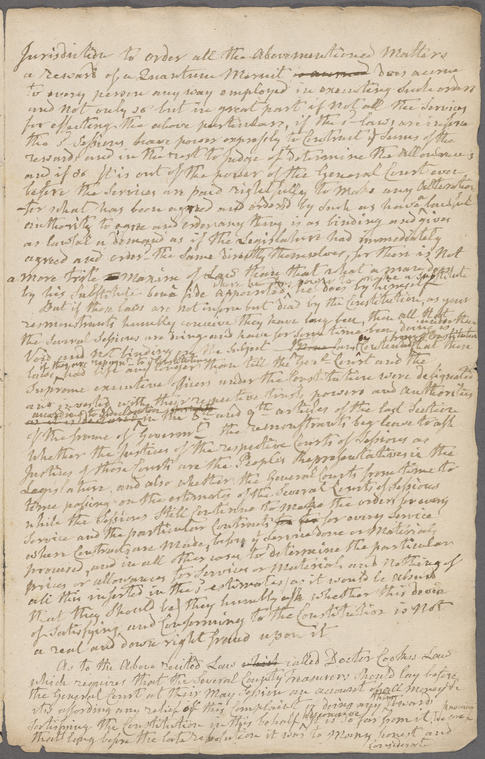 Jurisdiction to order all the Abovementioned Matters
a reward of a Quantum Meruit does accrue
to every person any way employed in executing such orders
and not only so but in great part if not all the Services
for effecting the above particulars, if the sd laws are in force
the sd Sessions have power expressly to Contract ye Sums of the
reward and in the rest to judge of & determine the allowances
and if so It is out of the power of the General Court ever
before the Services are paid rightfully to Make any alteration
for what has been agreed and ordered by such as have lawful
authority to agree and order any thing is as binding and gives
as lawful a demand as if the Legislature had immediately
agreed and order the same directly themselves, for there is Not
a more trite Maxime of Law than that what a man does
by his Substitute bona fide appointed he does by himself
where he has power to make a Substitute
But if those laws are not in force but dead by the Constitution, as your
remonstrants humbly conceive they have long been, then all that
the several Sessions are doing and have for some time been doing is
Void and not binding on the Subject
if they are repeal'd by the Constitution
laws any longer than till the Genl Court and the
Supreme executive officers under the Constitution were designated
and invested with their respective trusts powers and authorities
according to
as it is declared in the and 9th articles of the last Section
of the frame of Governmt the remonstrants beg leave to ask
whether the Justices of the respective Courts of Sessions as
Justices of those Courts are the Peoples Representatives in the
Legislature, and also whether the General Courts from time to
time passing on the estimates of the Several Courts of Sessions
while the Sessions still Continue to Make the orders for every
Service and the particular Contracts for every Service
when Contracts are made, before ye Service done or Materials
procured, and in all other cases to determine the particular
prices or allowances for Services or Materials and nothing of
all this inserted in the sd estimates (as it would be absurd
that they should be) they humbly ask whether this doing
of satisfying and Conforming to the Constitution is Not
a real and down right fraud upon it
As to the Above recited Law called Doctor Cooks Law
which requires that the Several County treasurers should lay before
the General Court at their May Session an account of all moneys &c
its affording any relief of this complaint or doing any thing toward
Satisfying the Constitution in this behalf it is so far from it
that long before the late revolution it was to Many honest and
Considerate